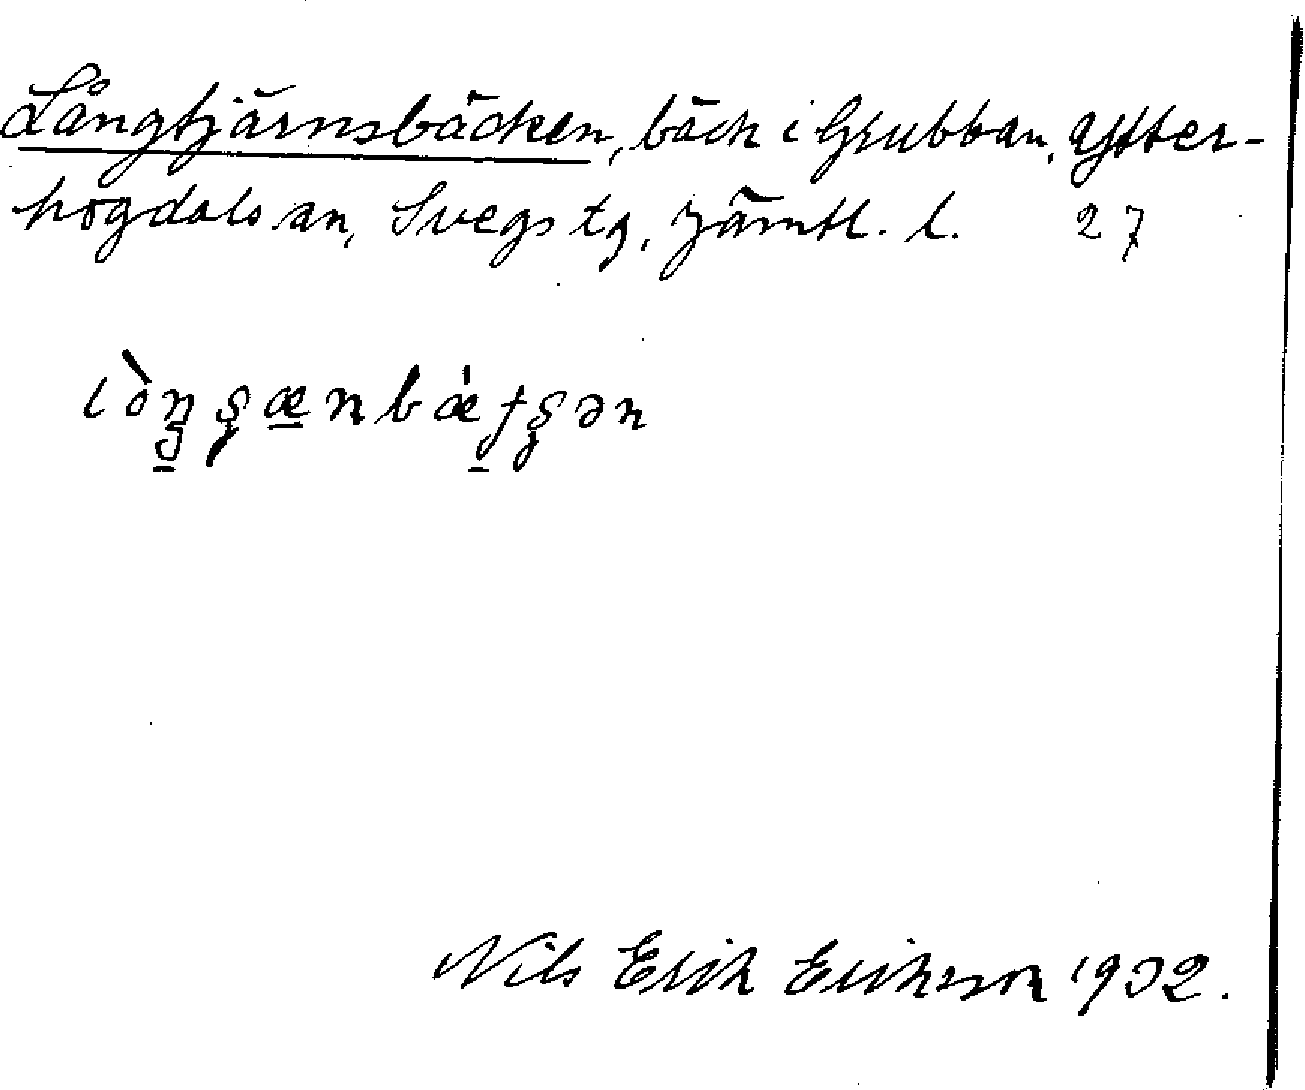 Långtjärnsbäcken, bäck i Grubban, Ytter-
hogdals sn, Svegs tg, Jämtl. l. 27
Nils Erik Erikson 1932.